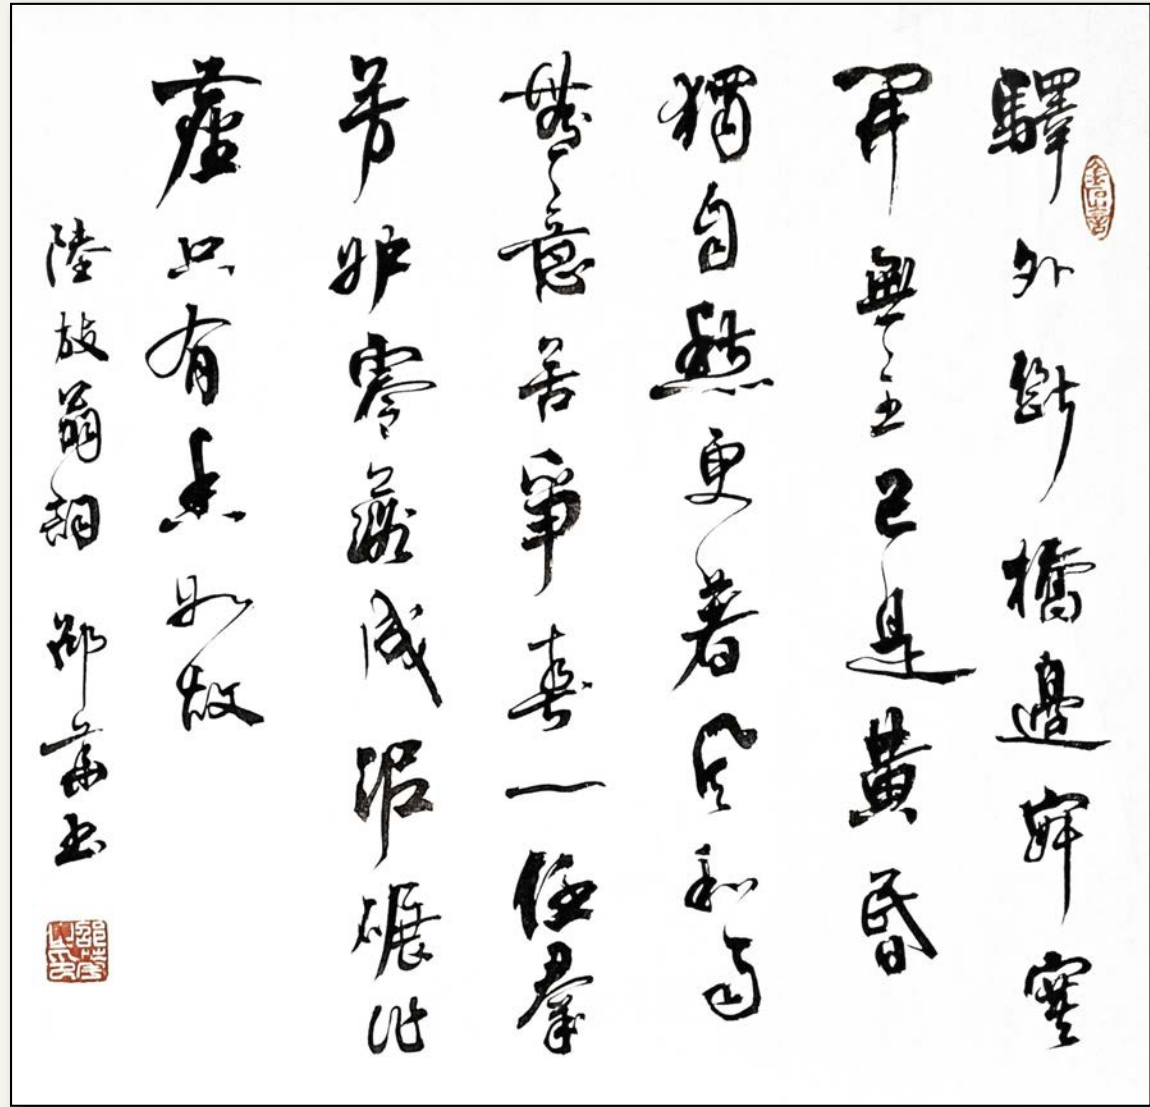 驛外斷橋邊寂寞
開無主已是黃昏
獨自愁更著風和雨
無意苦爭春一任羣
芳妒零落成泥碾作
塵只有香如故
陸放翁詞 邵書